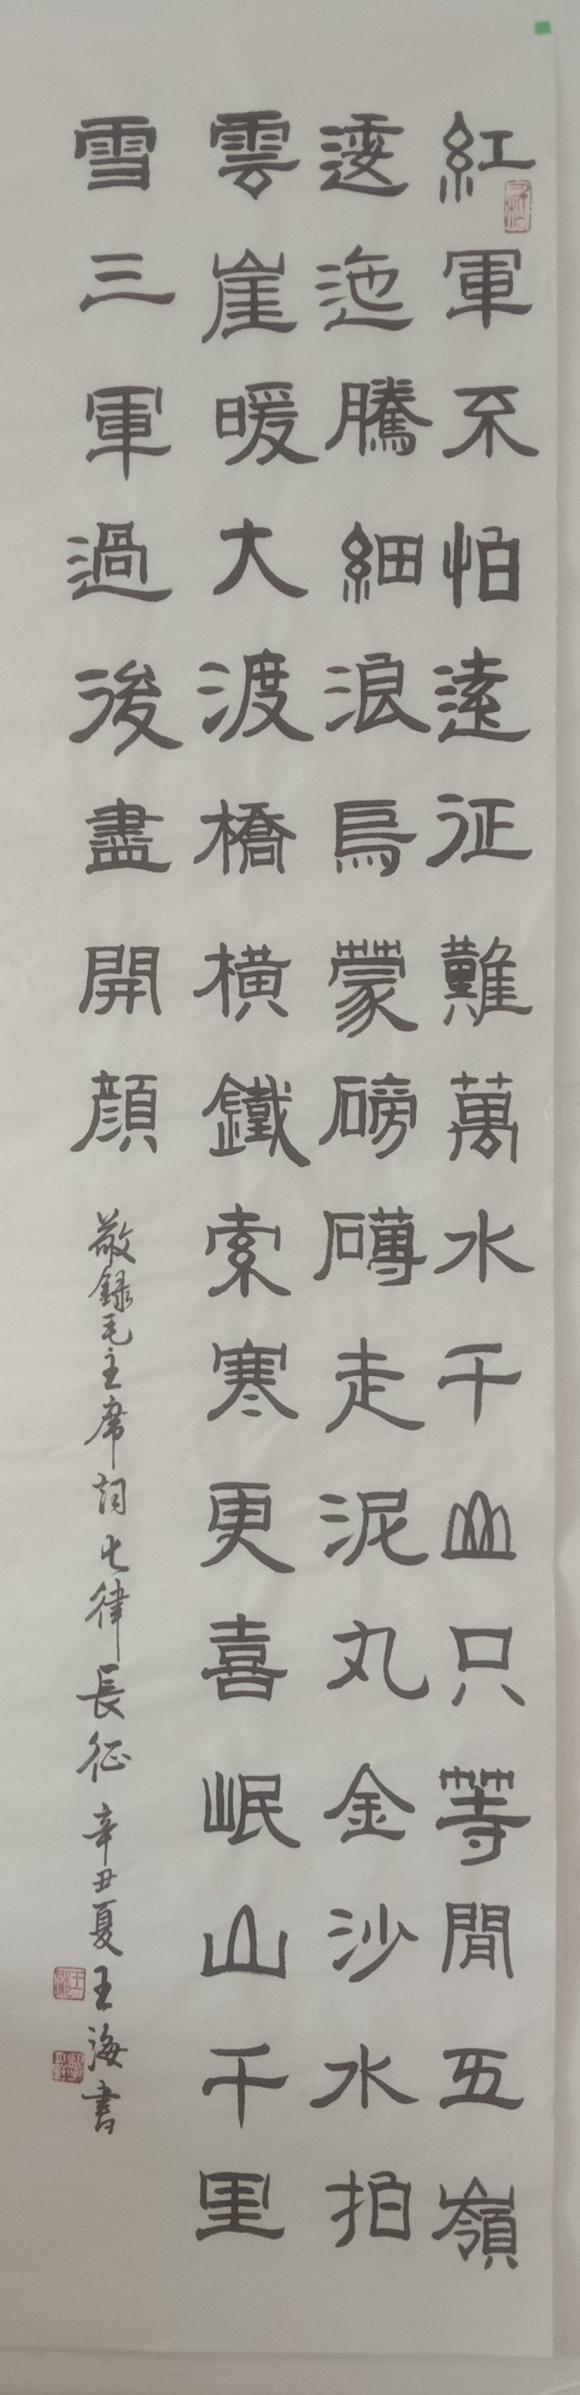 紅軍不怕遠征難萬水千山只等閒五嶺
逶迤騰細浪烏蒙磅礴走泥丸金沙水拍
雲崖暖大渡橋橫鐵索寒更喜岷山千里
雪三軍過後盡開顏
敬録毛主席詞七律長征辛丑夏王海書